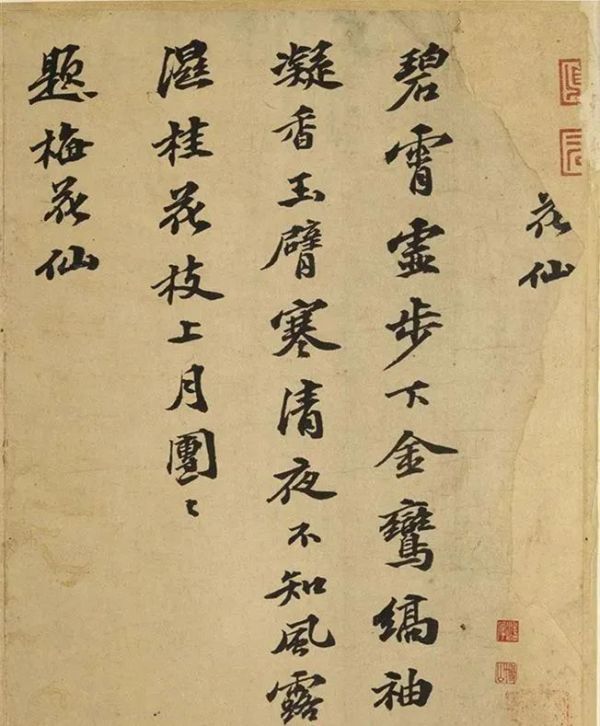 花仙
碧霄虛步下金鸞縞袖
凝香玉臂寒清夜不知風露
濕桂花枝上月團〻
題梅花仙